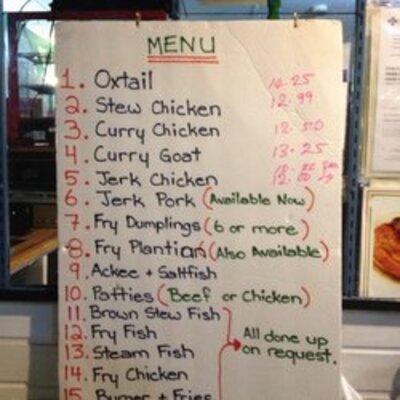 MENU
1. Oxtail 14.25
2. Stew Chicken 12.99
3. Curry Chicken 12.50
4. Curry Goat 13.25
5. Jerk Chicken
6. Jerk Pork (Available Now)
7. Fry Dumplings (6 or more)
8. Fry Plantian (Also Available)
9. Ackee + Saltfish
10. Patties (Beef or Chicken)
11. Brown Stew Fish
12. Fry Fish
13. Steam Fish
14. Fry Chicken
15. Burner + Fries
All done up
on request.